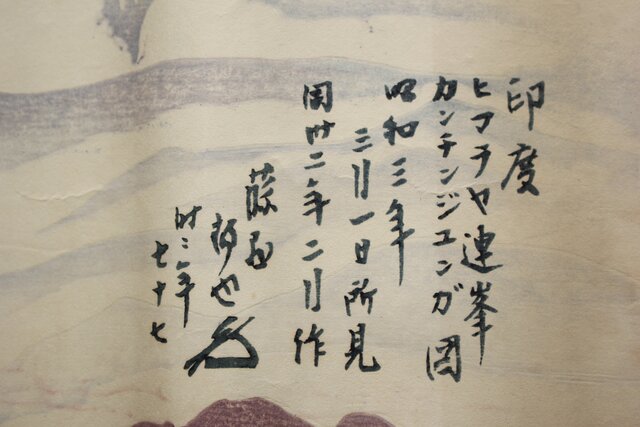 印度
ヒマラヤ連峯
カンチンジュンガ図
昭和三年
三月一日所見
同卅二年二月作
藤
也
時ニ年
七十七